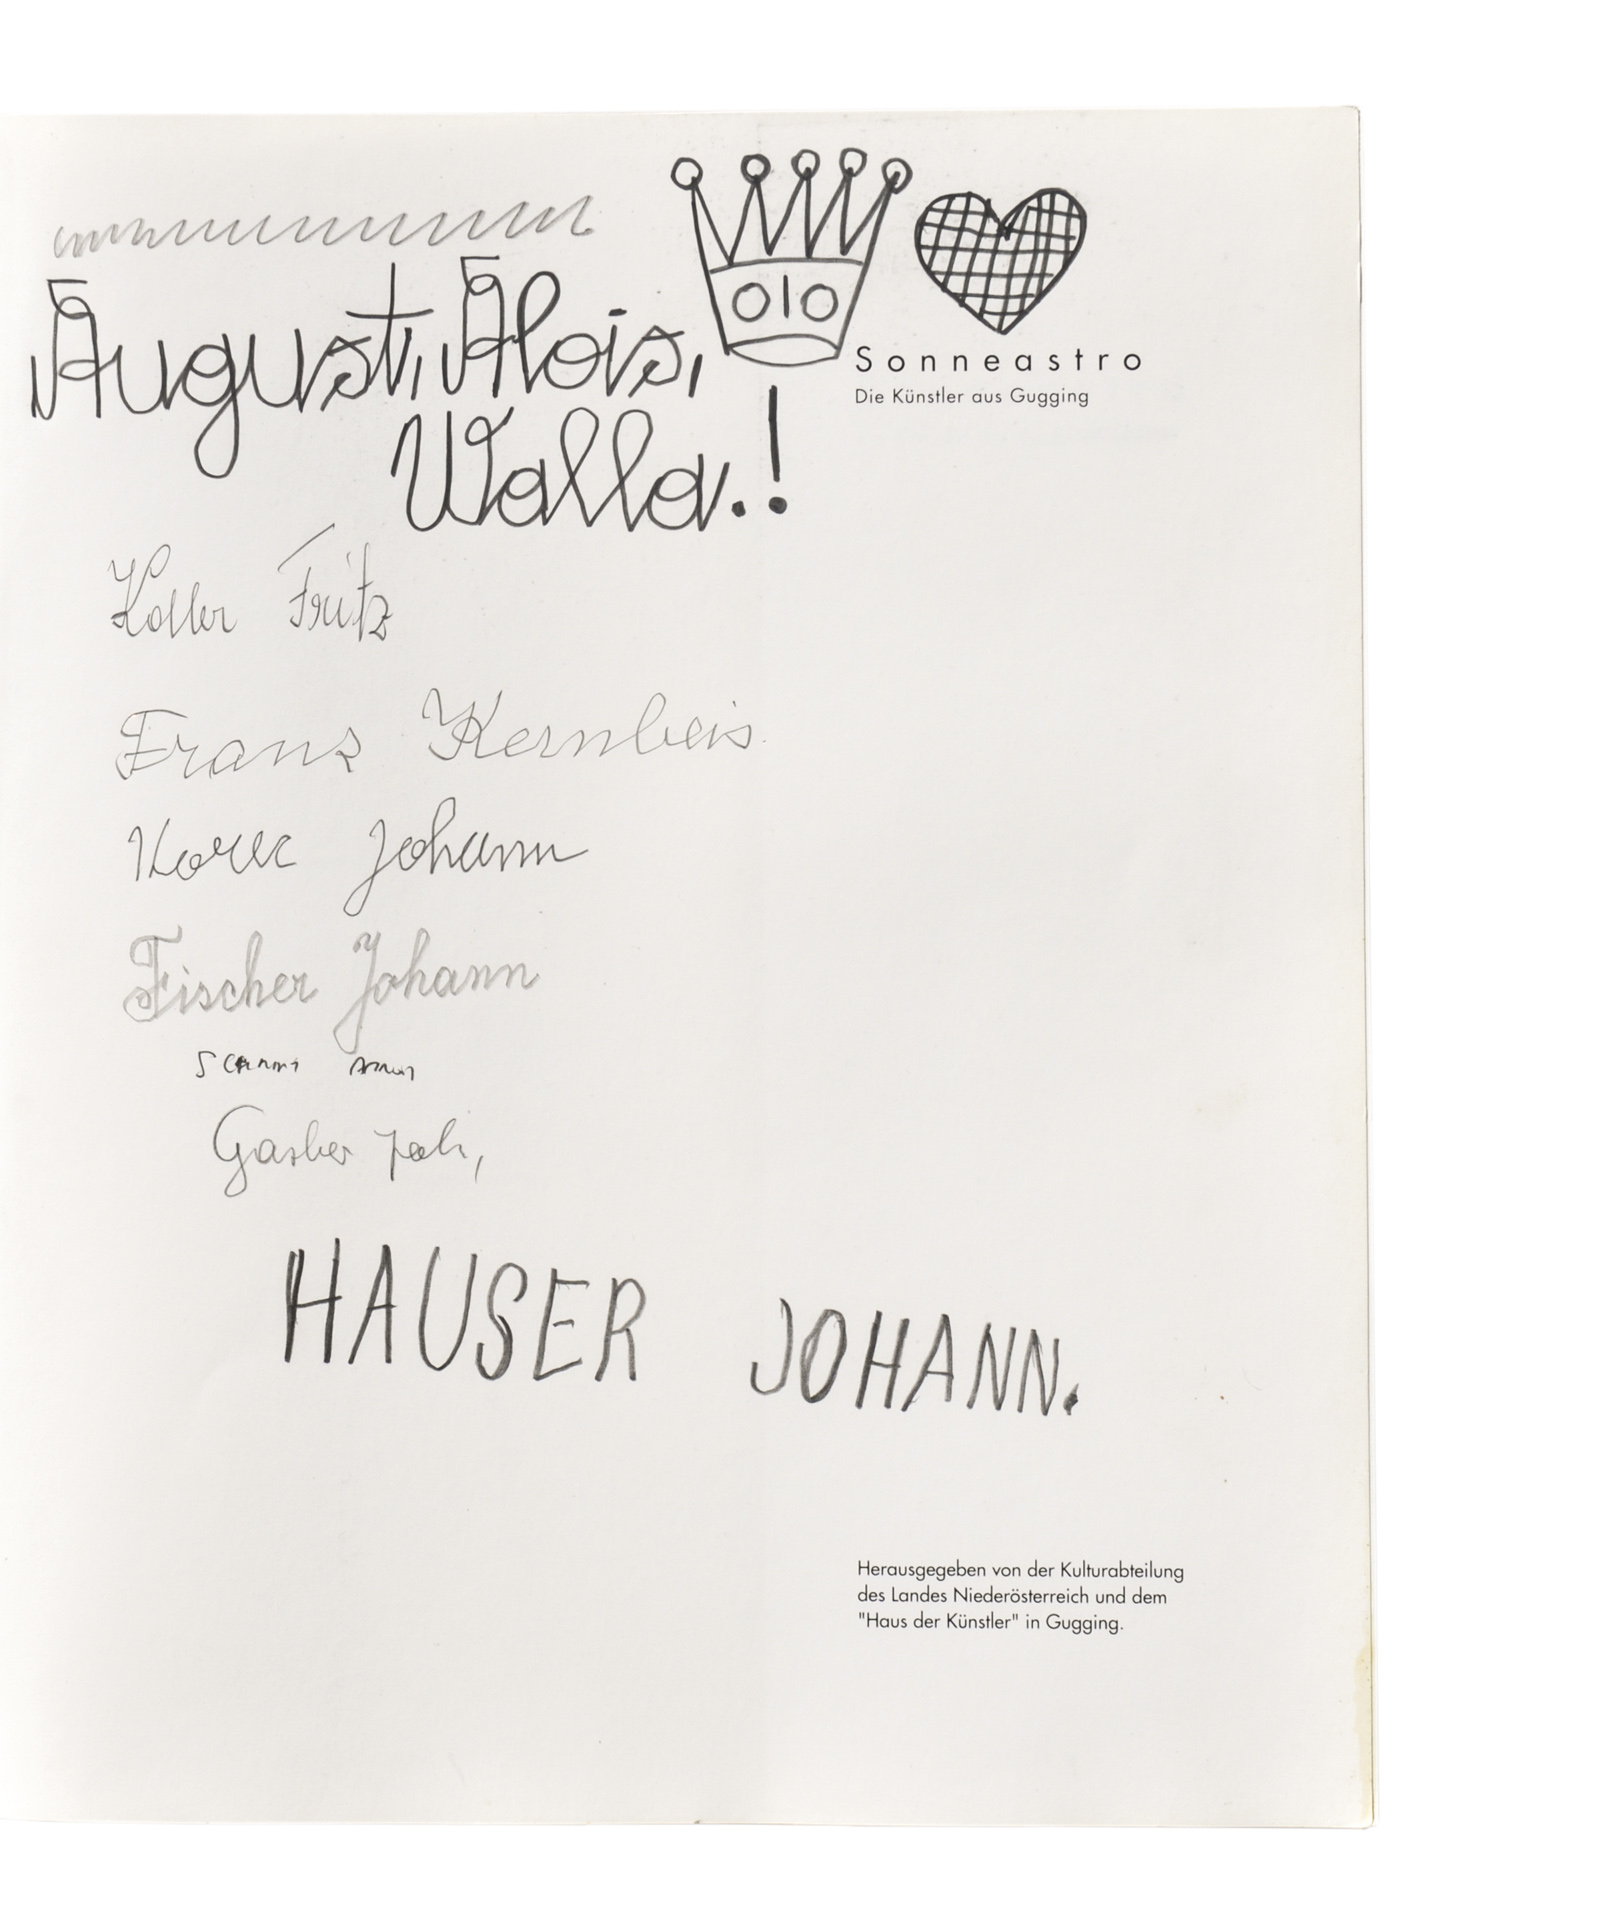 August, Alois,
Walla.!
Sonneastro
Die Künstler aus Gugging
Koller Fritz
Franz Kernbeis
Korec Johann
Fischer Johann
Garber
HAUSER JOHANN.
Herausgegeben von der Kulturabteilung
des Landes Niederösterreich und dem
"Haus der Künstler" in Gugging.